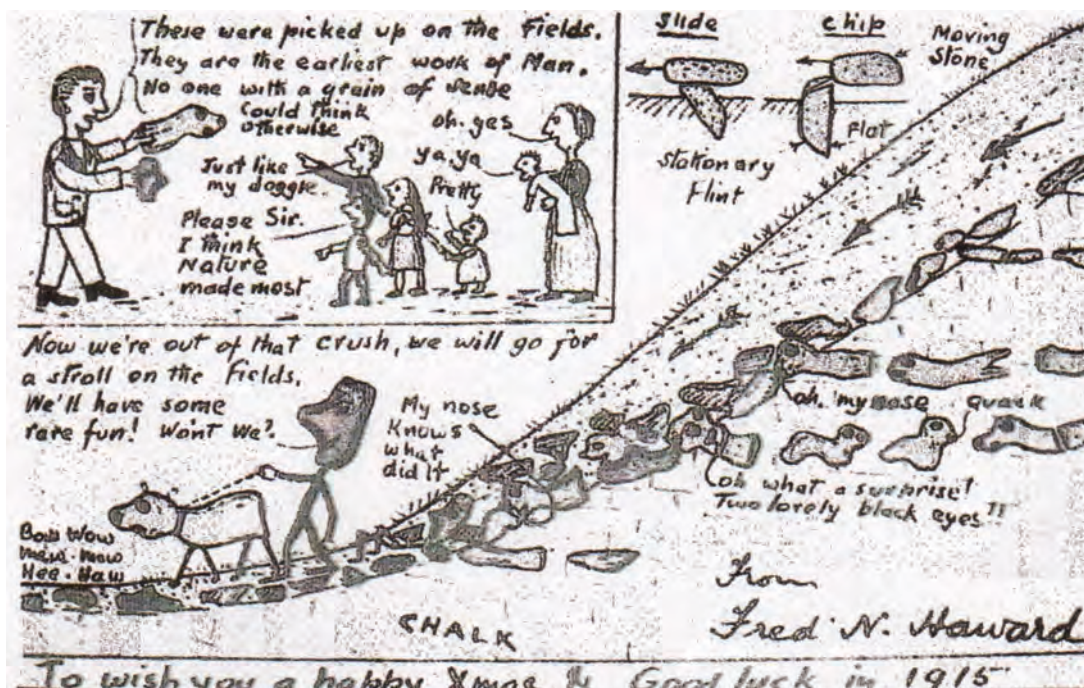 These were picked up on the Fields.
They are the earliest work of Man.
No one with a grain of sense
Could think
otherwise
Just like
my doggie.
Please Sir.
I think
Nature
made most
Oh. yes
ya. ya
Pretty
slide
chip
Moving
Stone
Flat
Stationary
Flint
Now we're out of that crush, we will go for
a stroll on the fields.
We'll have some
rare fun! Won't We?
My nose
Knows
what
did it
Bow Wow
mew-mew
Hee-Haw
oh. my nose
Quack
oh what a surprise!
Two lovely black eyes!!
CHALK
From
Fred N. Haward
To wish you a happy Xmas & Good luck in 1915